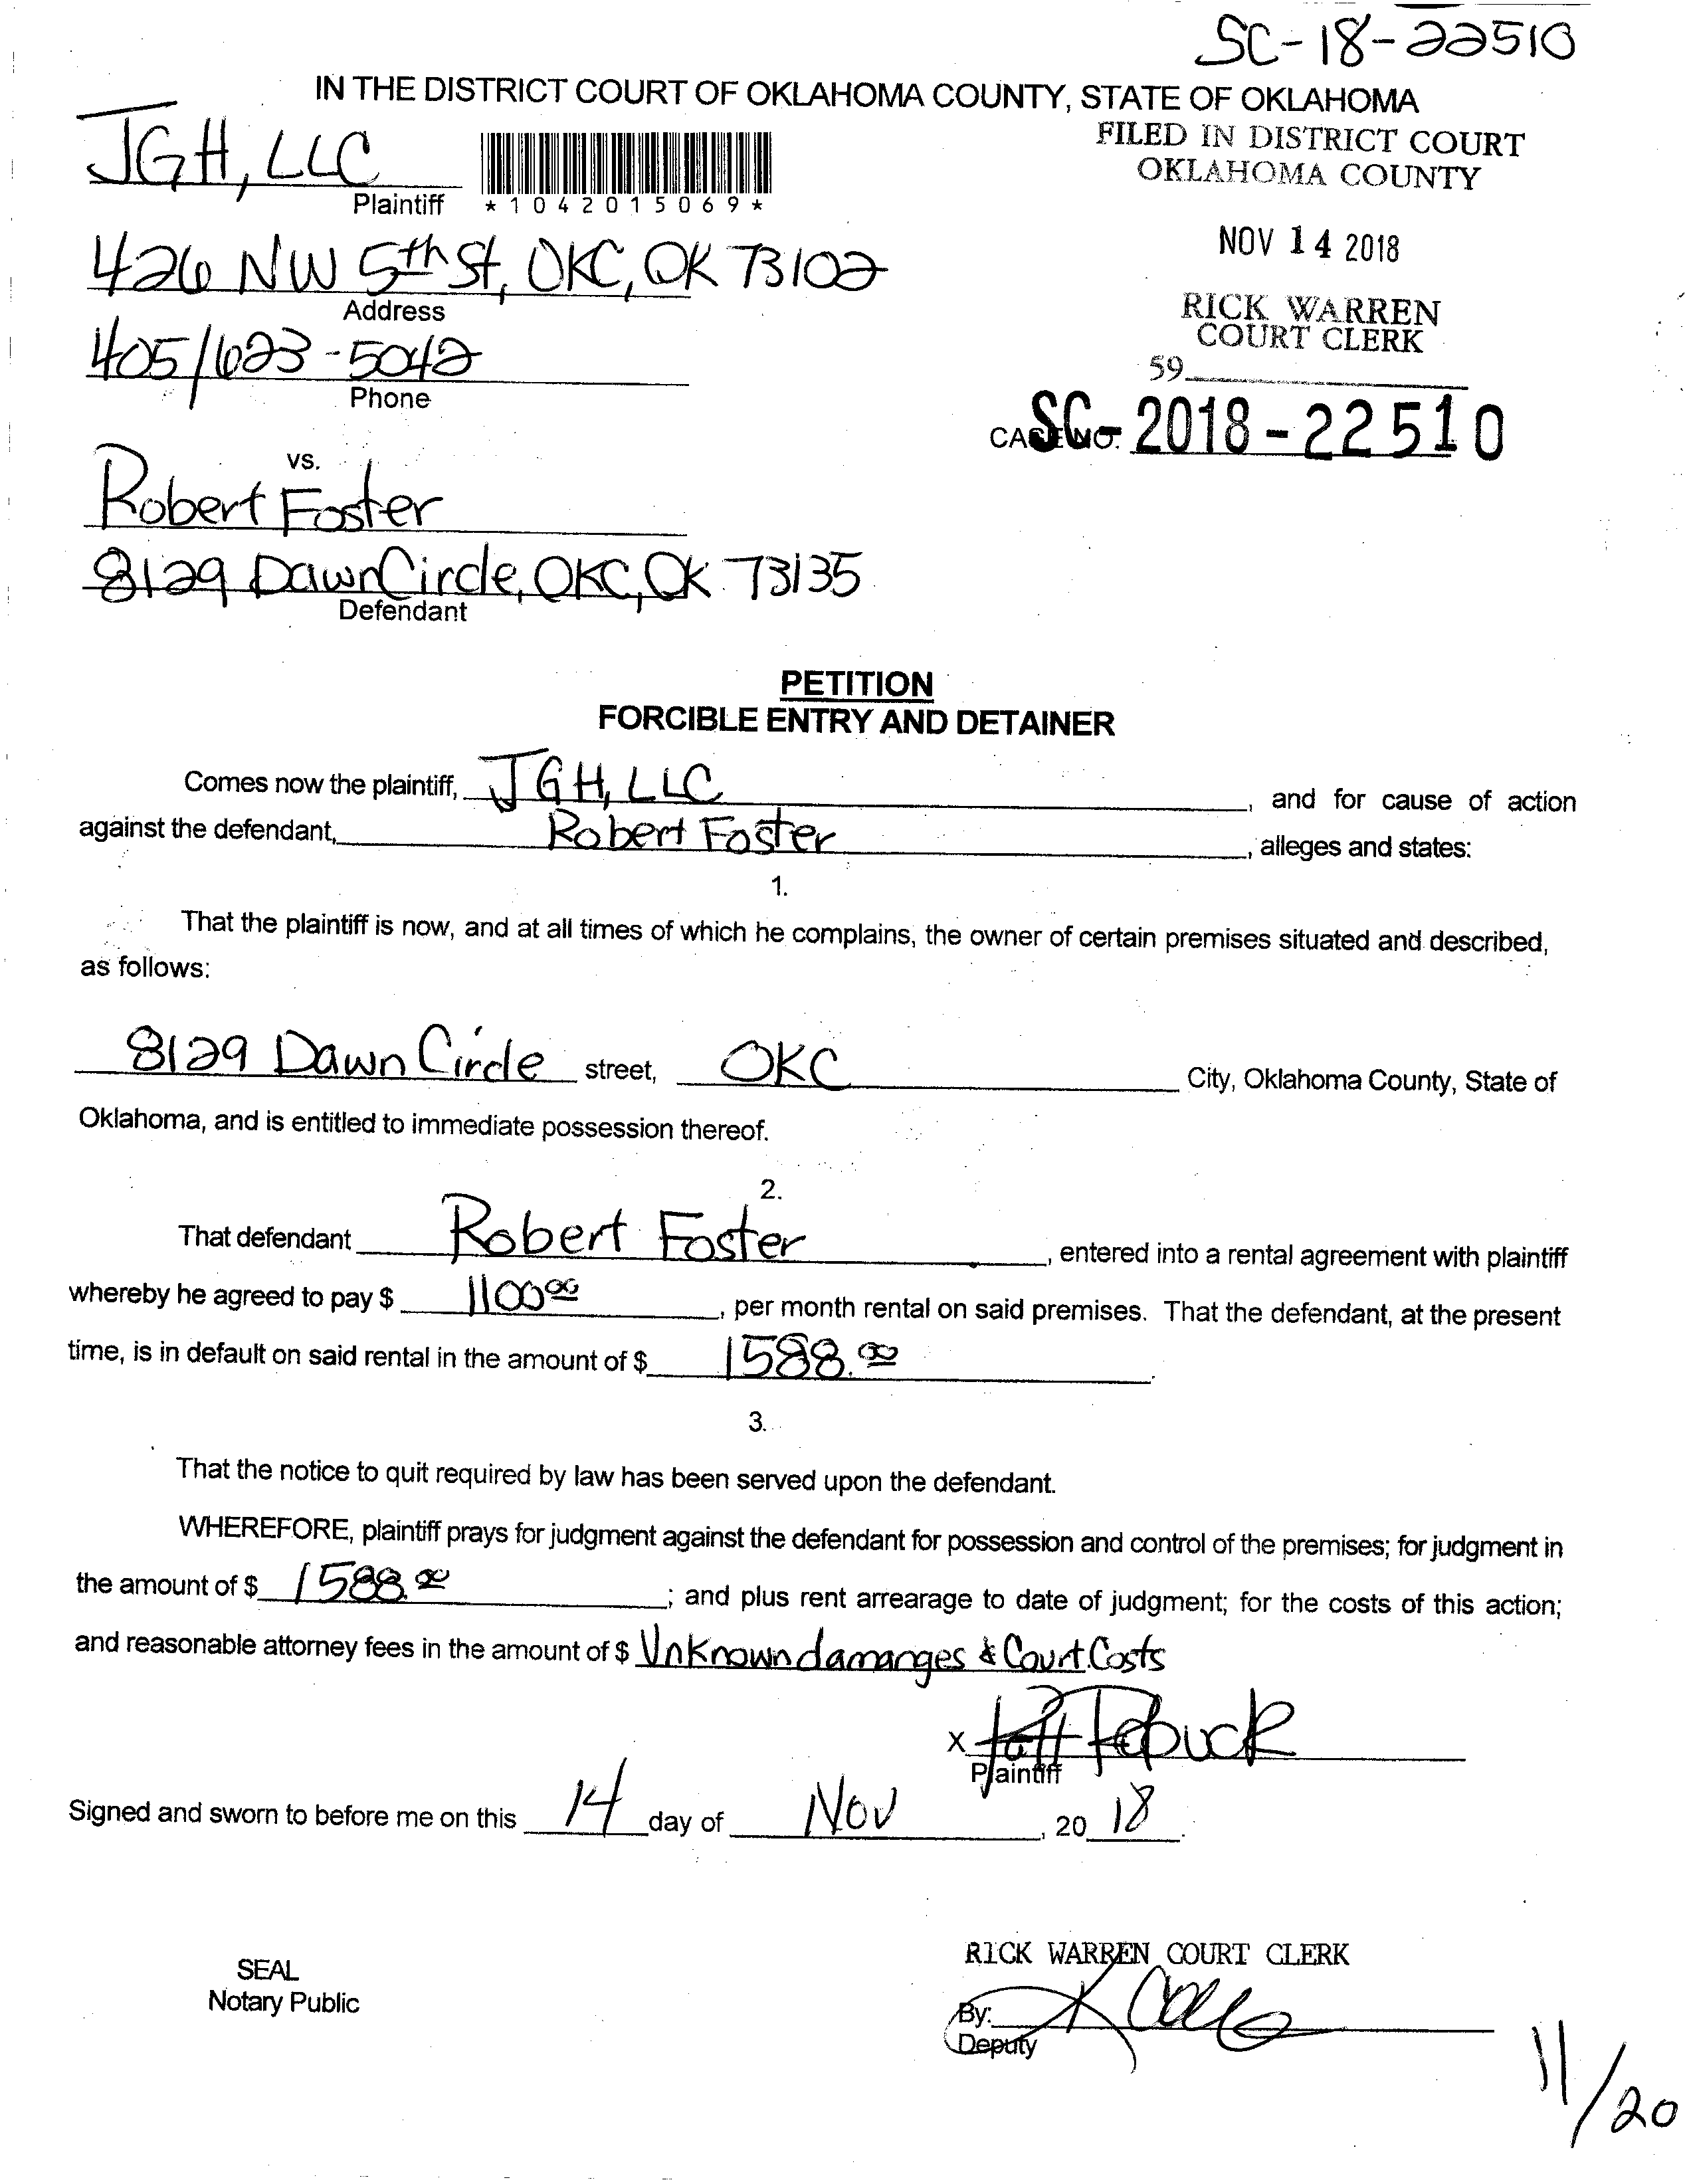 SC-18-22510
IN THE DISTRICT COURT OF OKLAHOMA COUNTY, STATE OF OKLAHOMA
JGH, LLC
Plaintiff
*1042015069*
FILED IN DISTRICT COURT
OKLAHOMA COUNTY
NOV 14 2018
RICK WARREN
COURT CLERK
59
426 NW 5th St, OKC, OK 73102
Address
405/623-5042
Phone
CASE NO. SC-2018-22510
vs.
Robert Foster
8129 Dawn Circle, OKC, OK 73135
Defendant
PETITION
FORCIBLE ENTRY AND DETAINER
Comes now the plaintiff, JGH, LLC, and for cause of action
against the defendant, Robert Foster, alleges and states:
1.
That the plaintiff is now, and at all times of which he complains, the owner of certain premises situated and described,
as follows:
8129 Dawn Circle street, OKC City, Oklahoma County, State of
Oklahoma, and is entitled to immediate possession thereof.
2.
That defendant Robert Foster, entered into a rental agreement with plaintiff
whereby he agreed to pay $ 1100.00, per month rental on said premises. That the defendant, at the present
time, is in default on said rental in the amount of $ 1588.00.
3.
That the notice to quit required by law has been served upon the defendant.
WHEREFORE, plaintiff prays for judgment against the defendant for possession and control of the premises; for judgment in
the amount of $ 1588.00; and plus rent arrearage to date of judgment; for the costs of this action;
and reasonable attorney fees in the amount of $ Unknown damanges & Court Costs
X
Plaintiff
Signed and sworn to before me on this 14 day of Nov, 20 18.
SEAL
Notary Public
RICK WARREN COURT CLERK
By:
Deputy
11/20